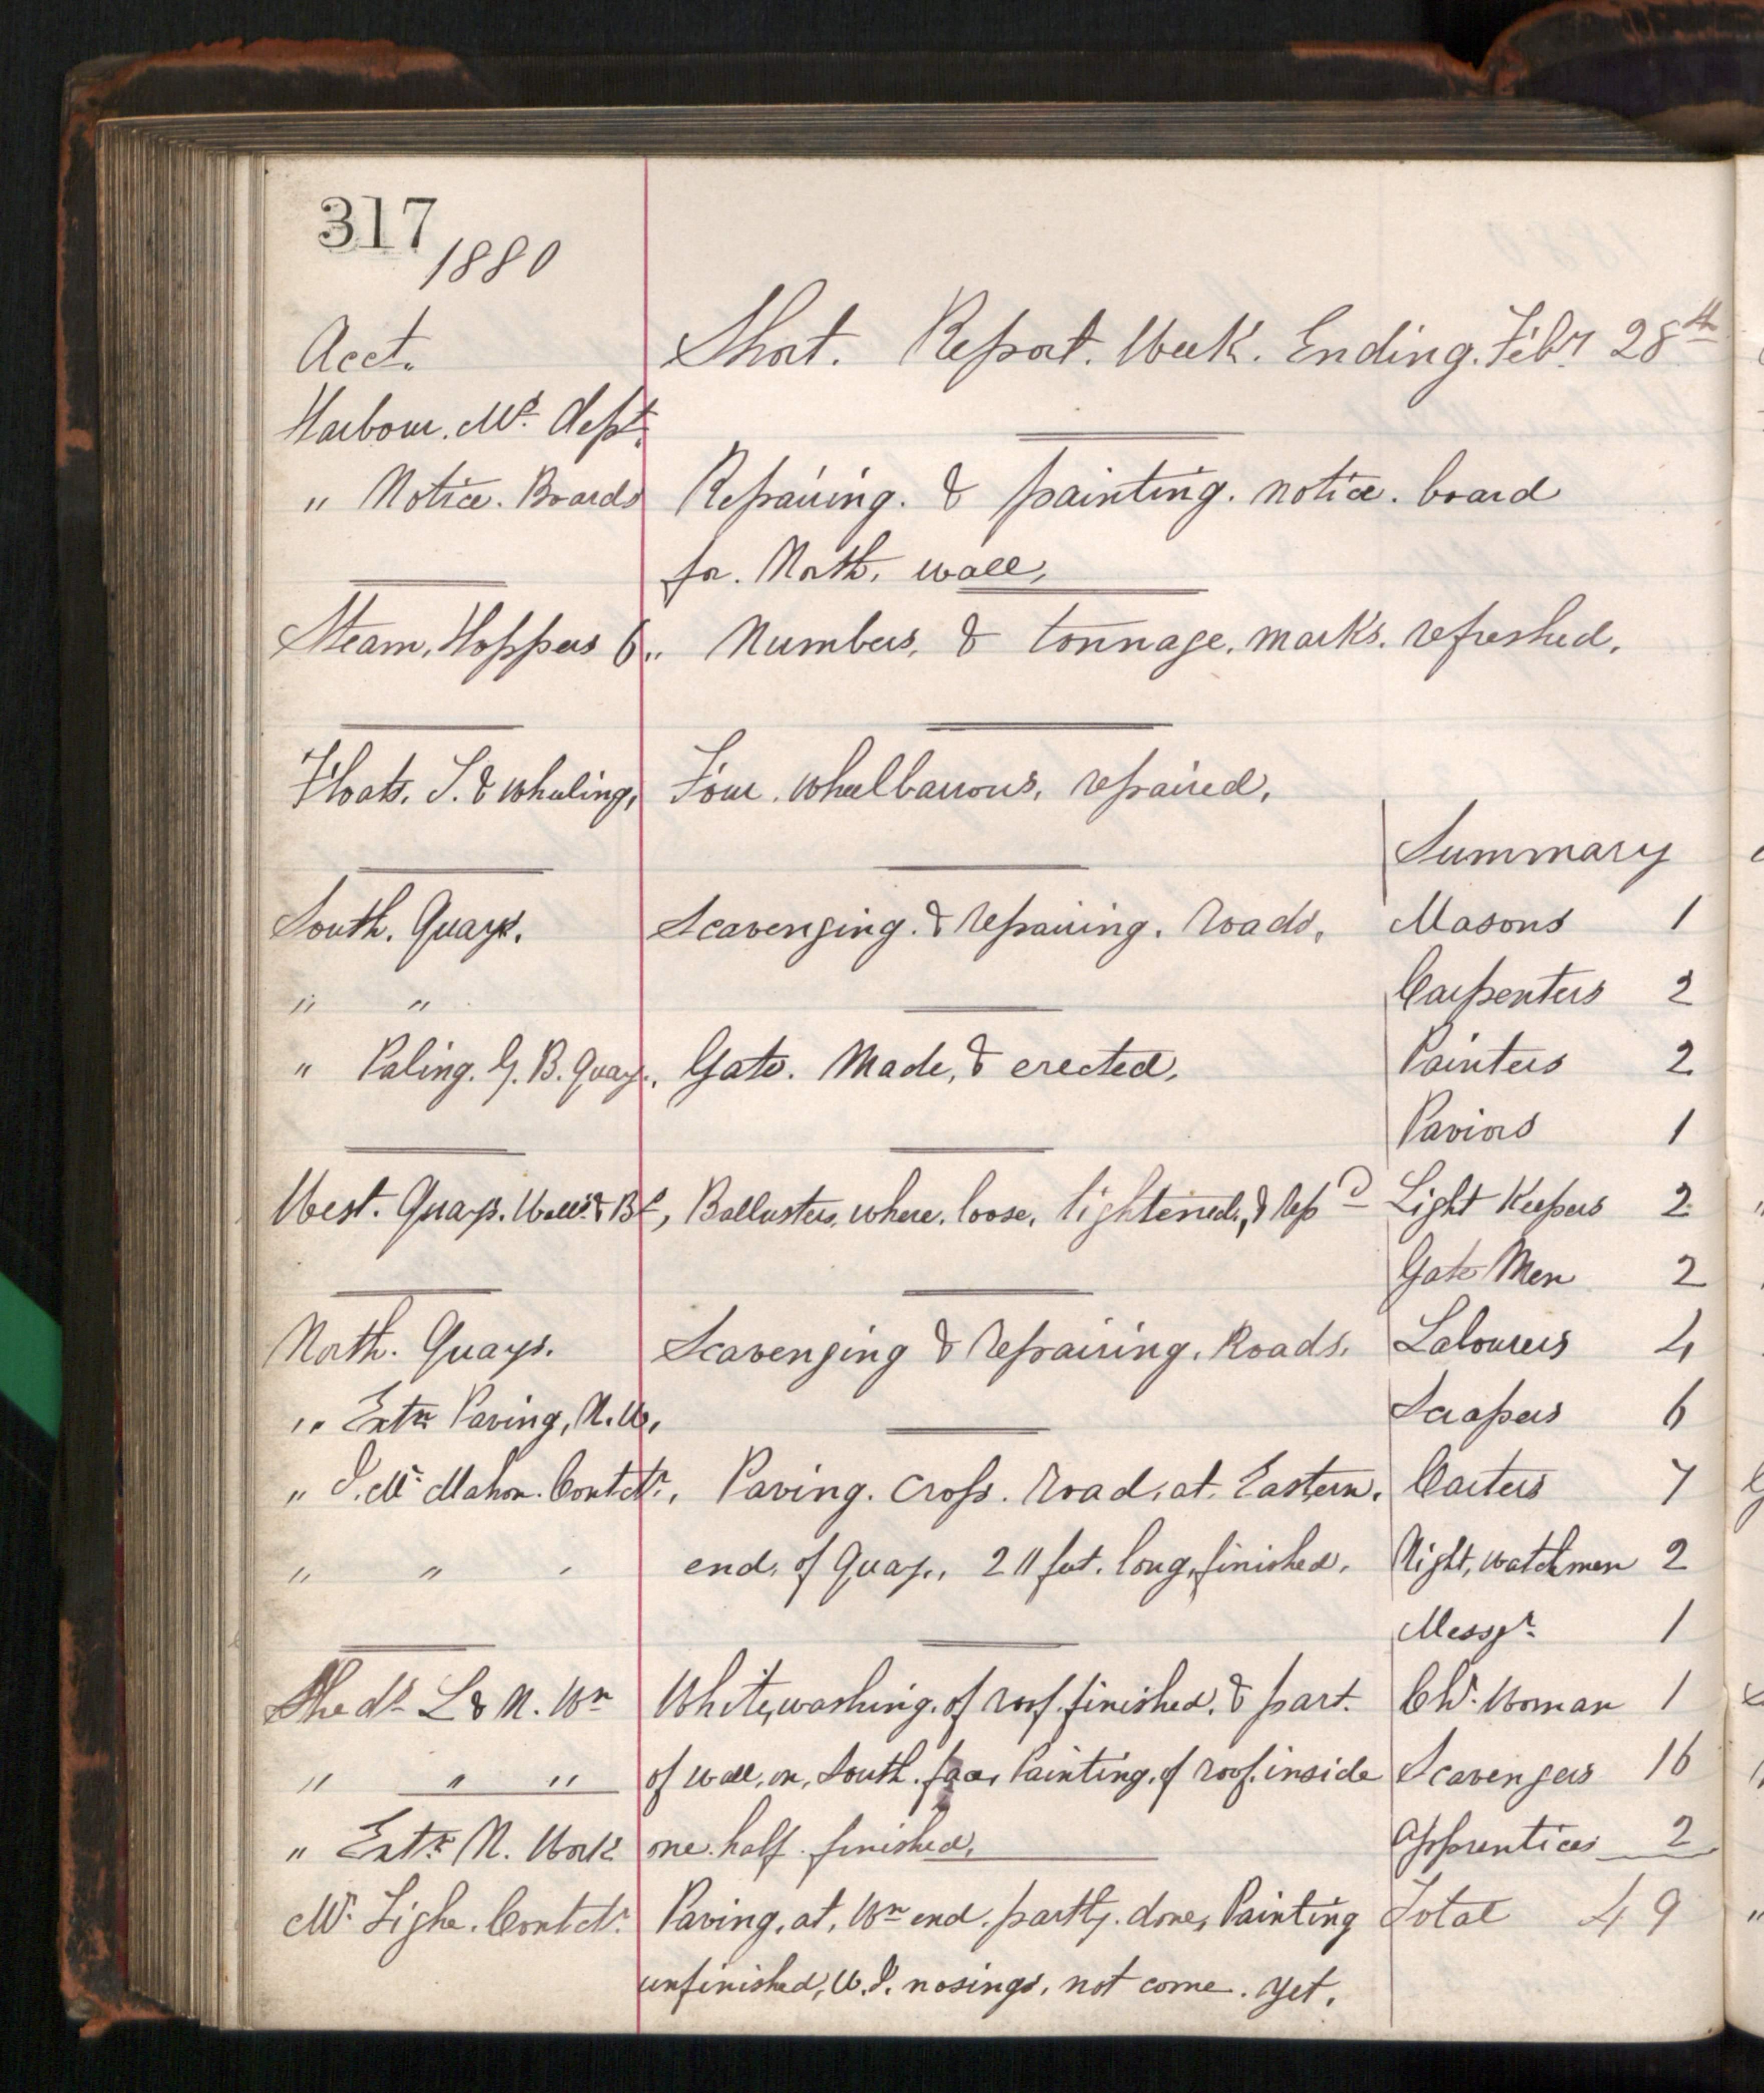 317
1880
Acct. Short. Report. Week. Ending. Feby 28th
Harbour. Mrs. dept.
" Notice. Boards Repairing. & painting. notice. board
for. North. wall,
Steam, Hoppers 6,. Numbers, & tonnage. marks. refreshed.
Floats. S. & wheeling, Four. wheelbarrows, repaired.
Summary
South. Quays. Scavenging. & repairing. roads. Masons 1
" " Carpenters 2
" Paling. G. B. Quay., Gate. Made, & erected. Painters 2
Paviors 1
West. Quays. Walls & Bs, Ballusters, where. loose, tightened, & repd Light Keepers 2
Gate Men 2
North. Quays. Scavenging & repairing. Roads. Labourers 4
" Extn Paving, N. W. Scrapers 6
" J. Mc Mahon. Contctr., Paving. cross. road. at. Eastern. Carters 7
" " " end. of Quay., 211 feet. long, finished. Night, watchmen 2
Messgr. 1
Sheds L & N. Wn Whitewashing. of roof. finished. & part. Chr. Woman 1
" " " of wall, on, South. face, Painting. of roof. inside Scavengers 16
" Extn N. Work one. half. finished. Apprentices 2
Mr. Tighe. Contctr. Paving, at, Wn end. partly. done, Painting Total 49
unfinished, W. I. nosings, not come. yet.